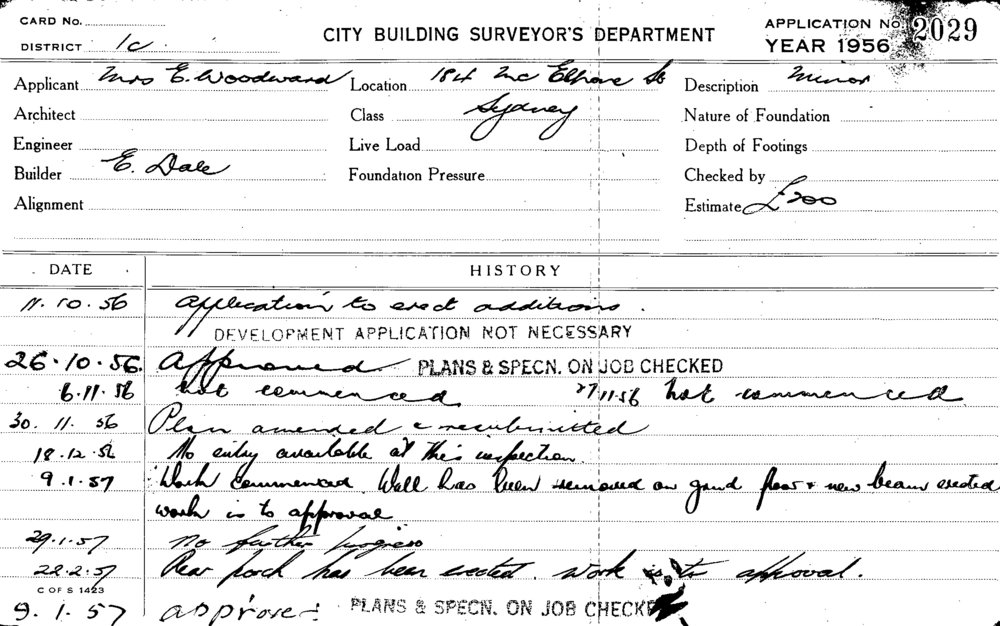 CARD No.
DISTRICT 1c.
CITY BUILDING SURVEYOR'S DEPARTMENT
APPLICATION No. 2029
YEAR 1956
Applicant Mrs E. Woodward Location 184 Mc Elhone St Description Minor
Architect Class Sydney Nature of Foundation
Engineer Live Load Depth of Footings
Builder E. Dale Foundation Pressure Checked by
Alignment Estimate £200
DATE HISTORY
11.10.56 Application to erect additions.
DEVELOPMENT APPLICATION NOT NECESSARY
26.10.56. Approved. PLANS & SPECN. ON JOB CHECKED
6.11.56 not commenced 27.11.56 not commenced
30.11.56 Plan amended & resubmitted
18.12.56 No entry available at this inspection.
9.1.57 Work commenced. Wall has been removed on grnd floor & new beam erected
work is to approval
29.1.57 no further progress
22.2.57 Rear porch has been erected. work is to approval.
C OF S 1423
9.1.57 approved PLANS & SPECN. ON JOB CHECKED